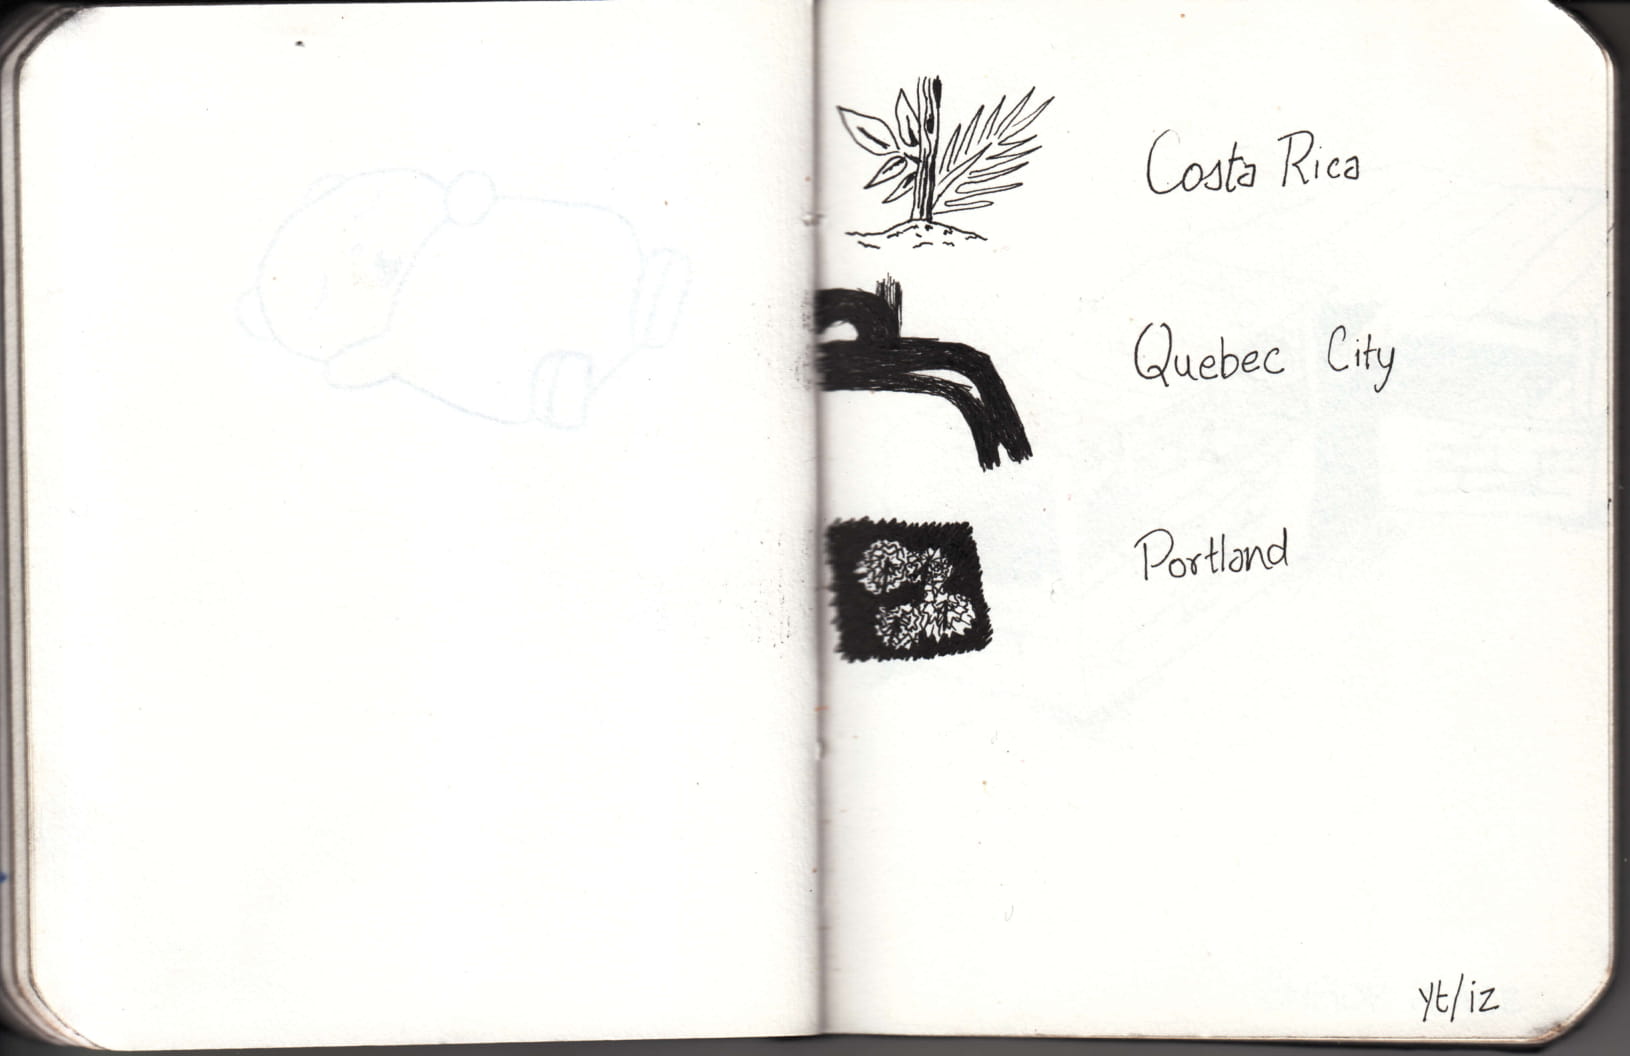 Costa Rica
Quebec City
Portland
yt/iz